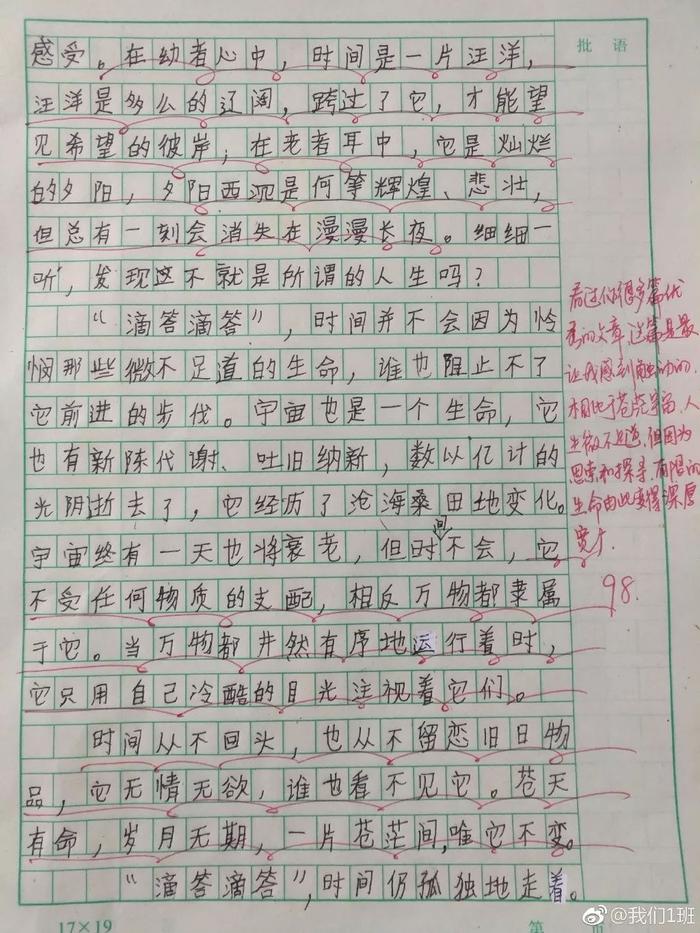 批语
感受。在幼者心中，时间是一片汪洋，
汪洋是多么的辽阔，跨过了它，才能望
见希望的彼岸；在老者耳中，它是灿烂
的夕阳，夕阳西沉是何等辉煌、悲壮，
但总有一刻会消失在漫漫长夜。细细一
听，发现这不就是所谓的人生吗？
“滴答滴答”，时间并不会因为怜
悯那些微不足道的生命，谁也阻止不了
它前进的步伐。宇宙也是一个生命，它
也有新陈代谢、吐旧纳新，数以亿计的
光阴逝去了，它经历了沧海桑田地变化。
宇宙终有一天也将衰老，但时间不会，它
不受任何物质的支配，相反万物都隶属
于它。当万物都井然有序地运行着时，
它只用自己冷酷的目光注视着它们。
时间从不回头，也从不留恋旧日物
品，它无情无欲，谁也看不见它。苍天
有命，岁月无期，一片苍茫间，唯它不变。
“滴答滴答”，时间仍孤独地走着。
看过你很多篇优
秀的文章，这篇是最
让我感到触动的，
相比于苍茫宇宙，人
生微不足道，但因为
思索和探寻，有限的
生命由此变得深厚
宽广。
98.
17×19
第 页
@我们1班